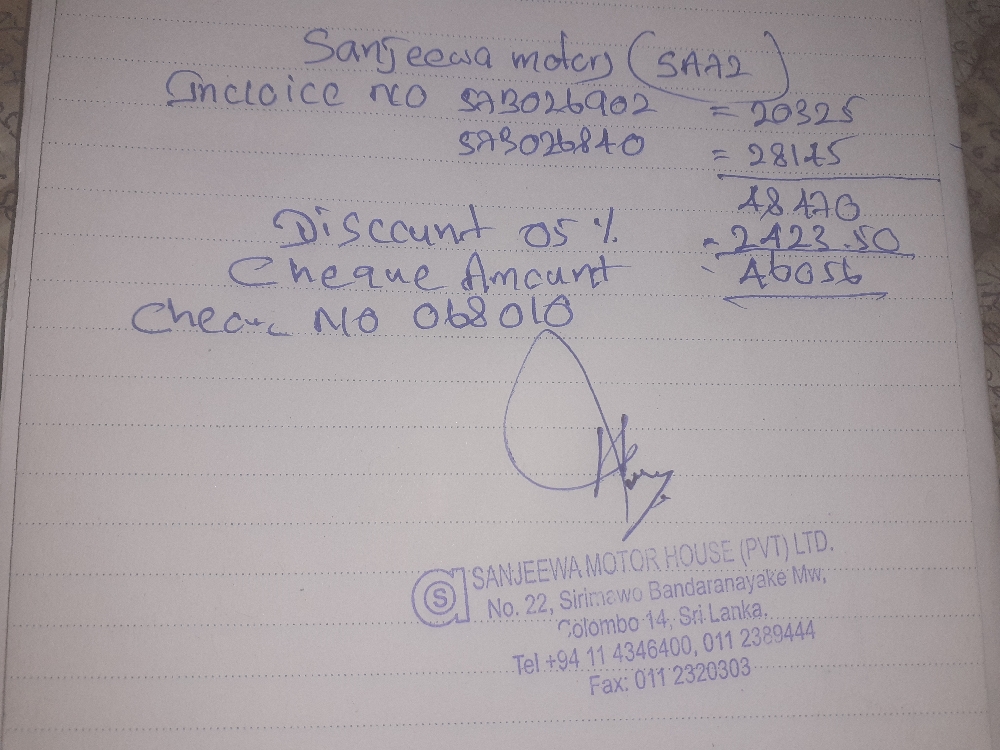 Sanjeewa motors (SAA2)
Incloice NO SAB026902 = 20325
SAB026840 = 28145
48470
Discount 05 % - 2423.50
Cheque Amount - 46056
NO 068010
SANJEEWA MOTOR HOUSE (PVT) LTD.
No. 22, Sirimawo Bandaranayake Mw,
Colombo 14, Sri Lanka.
Tel +94 11 4346400, 011 2389444
Fax: 011 2320303